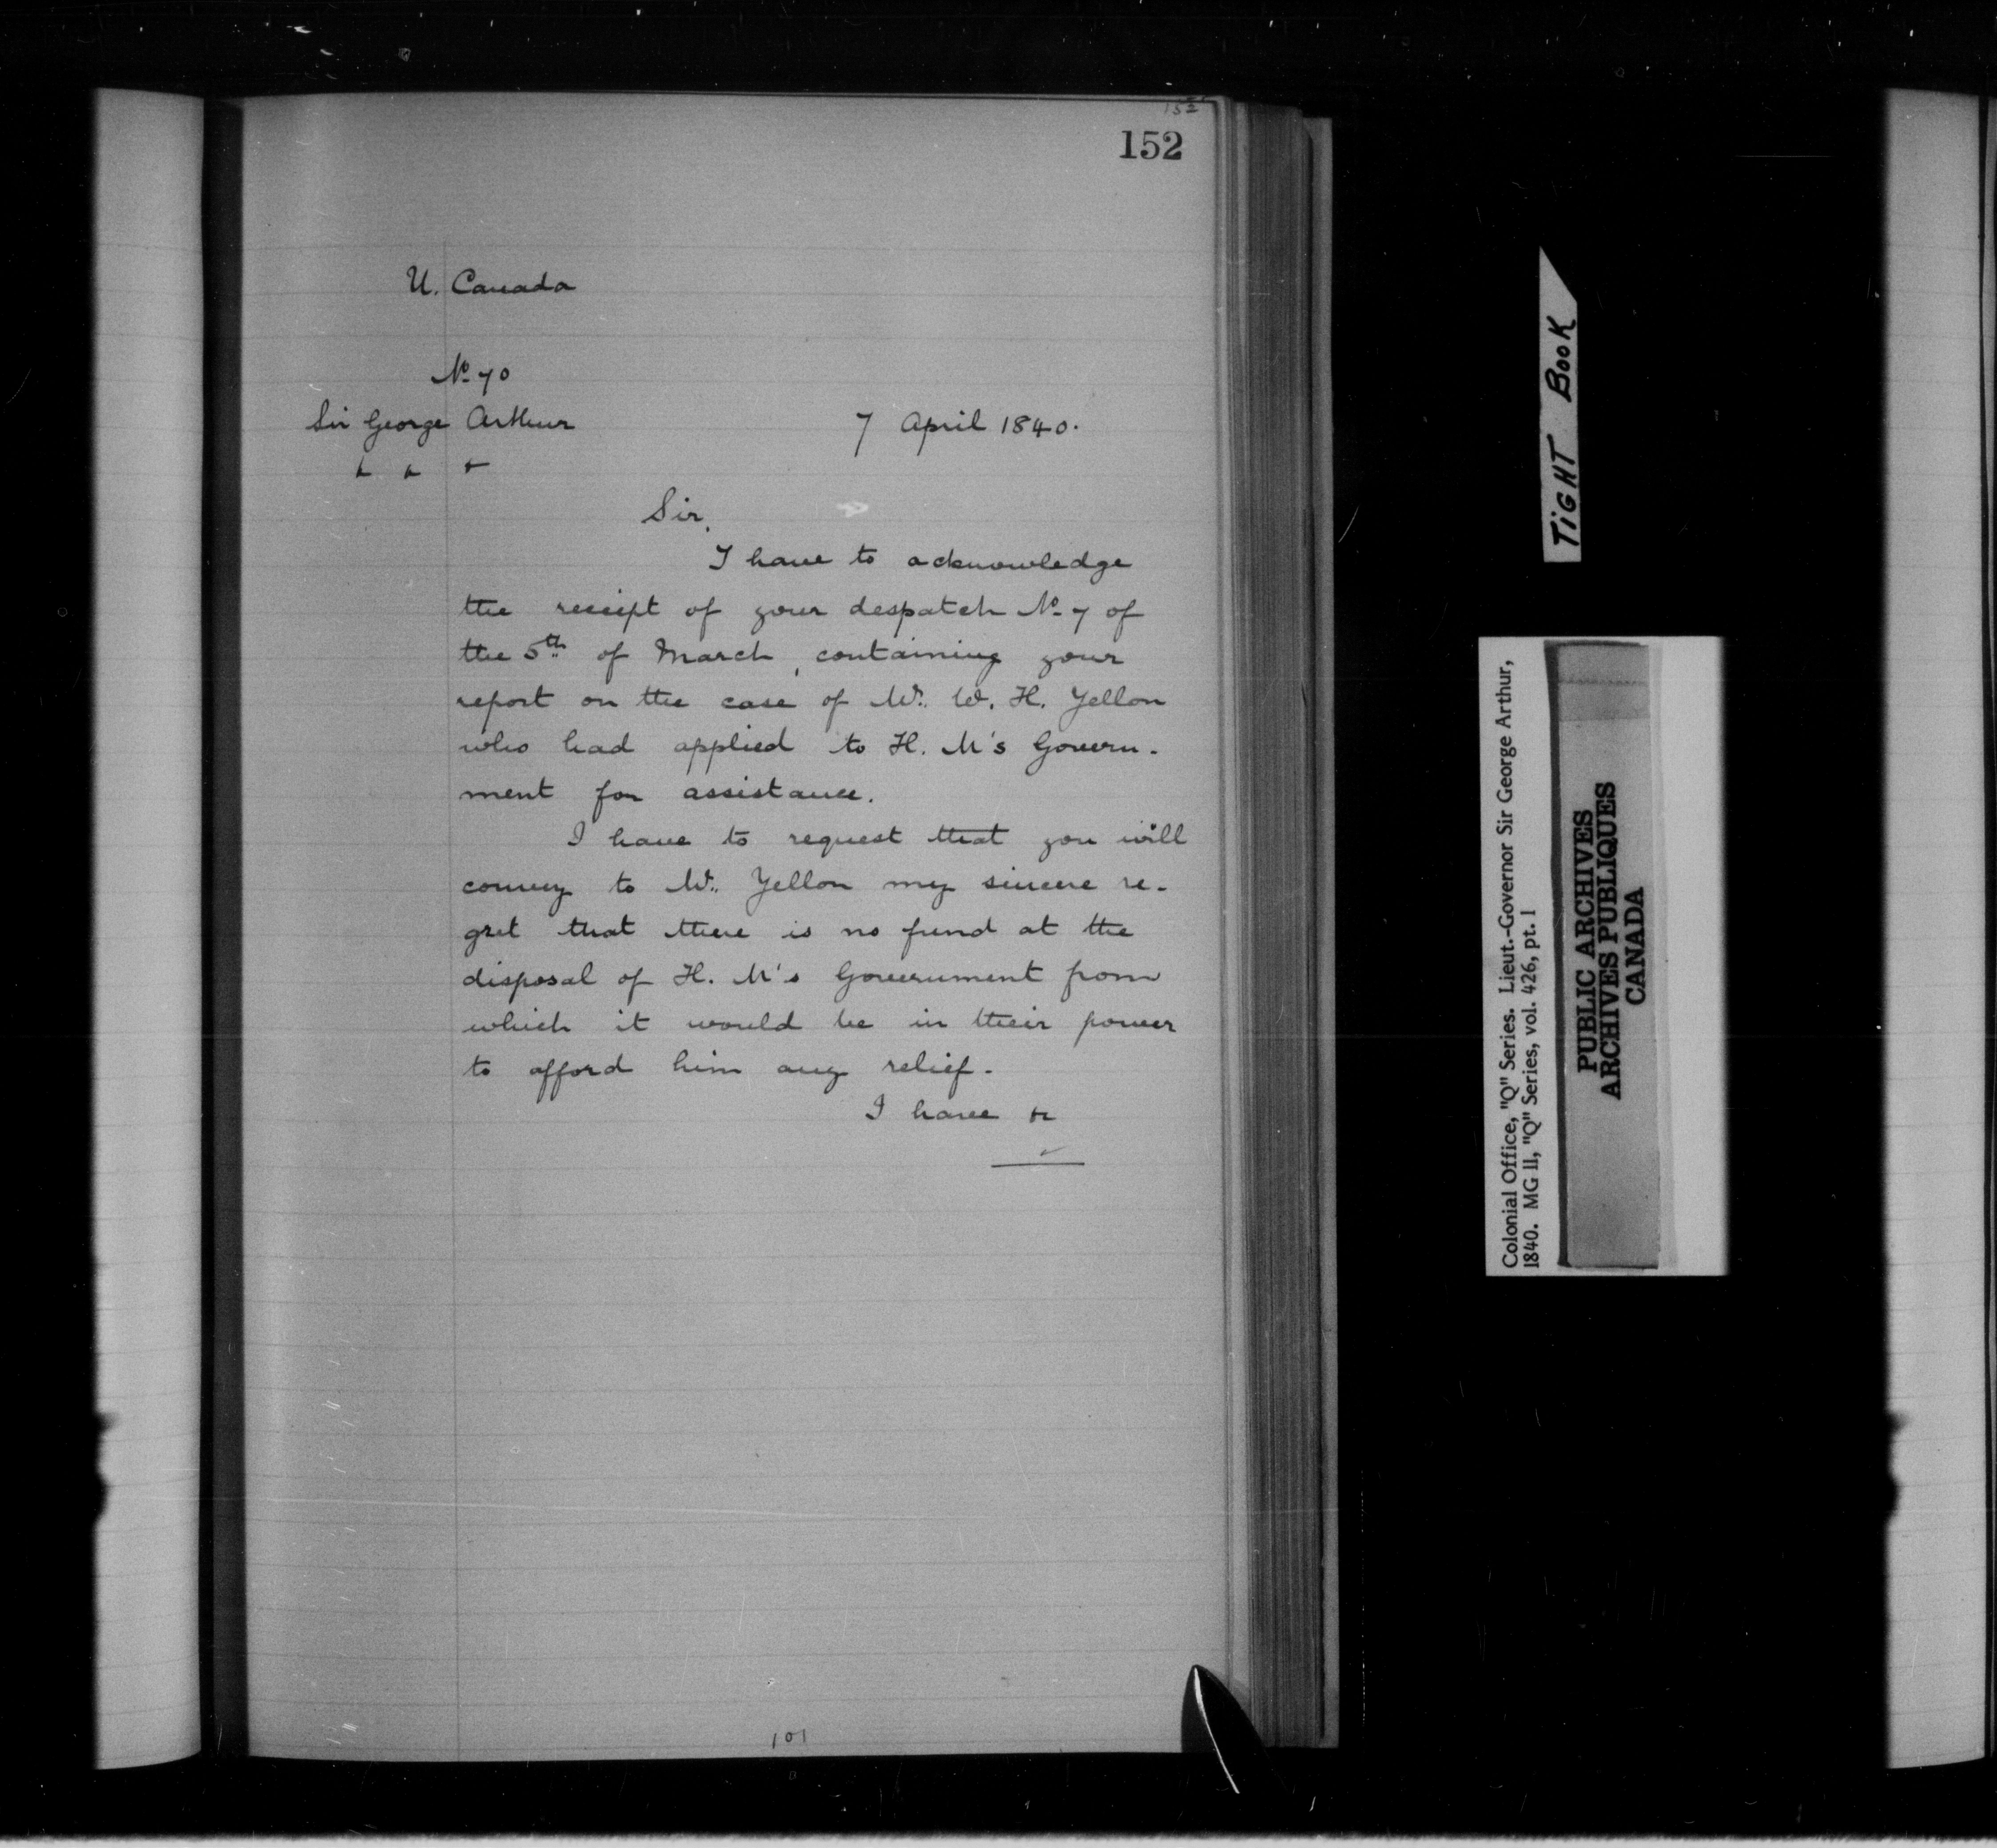 152
152
U. Canada
No. 70
Sir George Arthur
7 April 1840.
& & &
Sir,
I have to acknowledge
the receipt of your despatch No. 7 of
the 5th of March, containing your
report on the case of Mr. W. H. Yellon
who had applied to H. M's Govern-
ment for assistance.
I have to request that you will
convey to Mr. Yellon my sincere re-
gret that there is no fund at the
disposal of H. M's Government from
which it would be in their power
to afford him any relief.
I have &c
101
TIGHT BOOK
Colonial Office, "Q" Series. Lieut.-Governor Sir George Arthur,
1840. MG 11, "Q" Series, vol. 426, pt. 1
PUBLIC ARCHIVES
ARCHIVES PUBLIQUES
CANADA